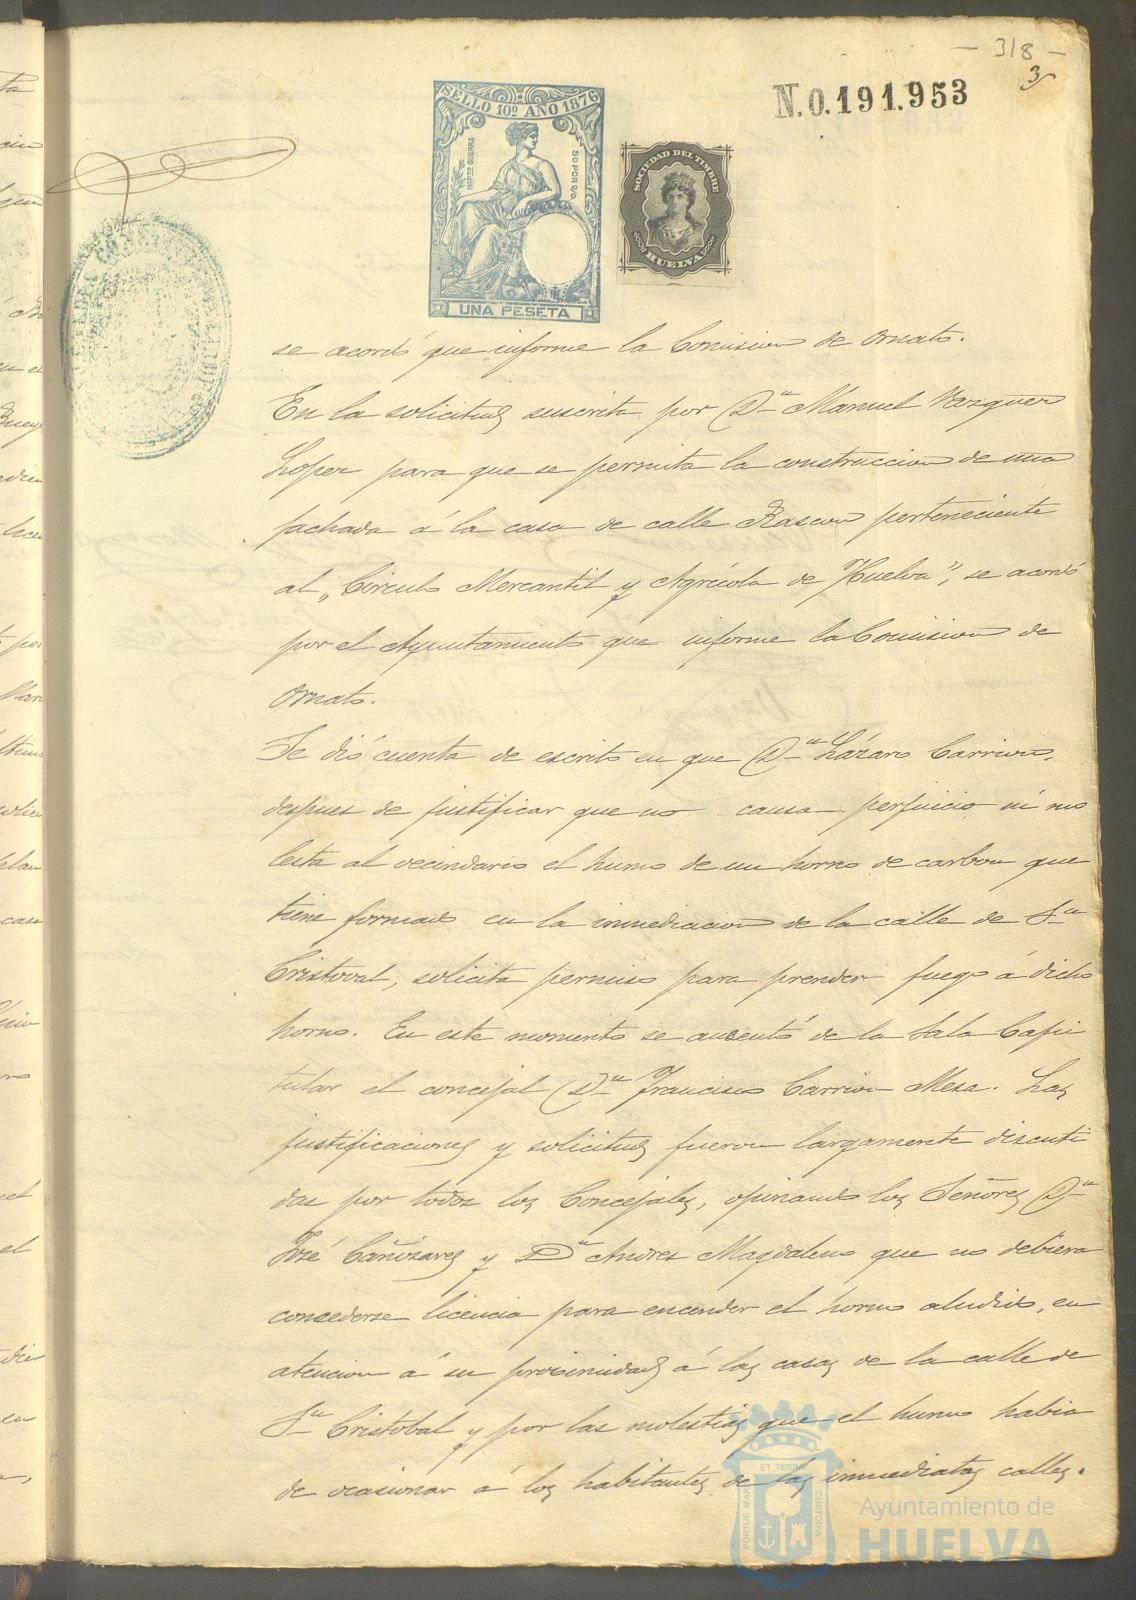 - 318 -
3
N.0.191.953
SELLO 10º AÑO 1876
IMPTO GUERRA
50 POR %
UNA PESETA
SOCIEDAD DEL TIMBRE
HUELVA
se acordó que informe la Comision de Ornato.
En la solicitud suscrita por Dn Manuel Vazquez
Lopez para que se permita la construccion de una
fachada á la casa de calle Rascon perteneciente
al „Circulo Mercantil y Agrícola de Huelva", se acordó
por el Ayuntamiento que informe la Comision de
Ornato.
Se dió cuenta de escrito en que Dn Lázaro Carrion,
despues de justificar que no causa perjuicio ni mo
lestia al vecindario el humo de un horno de carbon que
tiene formado en la inmediacion de la calle de Sn
Cristoval, solicita permiso para prender fuego á dicho
horno. En este momento se ausentó de la Sala Capi
tular el concejal Dn Francisco Carrion Mesa. Las
justificaciones y solicitud fueron largamente discuti
das por todos los Concejales, opinando los Señores Dn
José Cañizares y Dn Andres Magdaleno que no debiera
concederse licencia para encender el horno aludido, en
atencion á su proximidad á las casas de la calle de
Sn Cristobal y por las molestias que el humo habia
de ocasionar á los habitantes de las inmediatas calles.
PORTUS MARIS
ET TERRAE
CUSTODIA
Ayuntamiento de
HUELVA